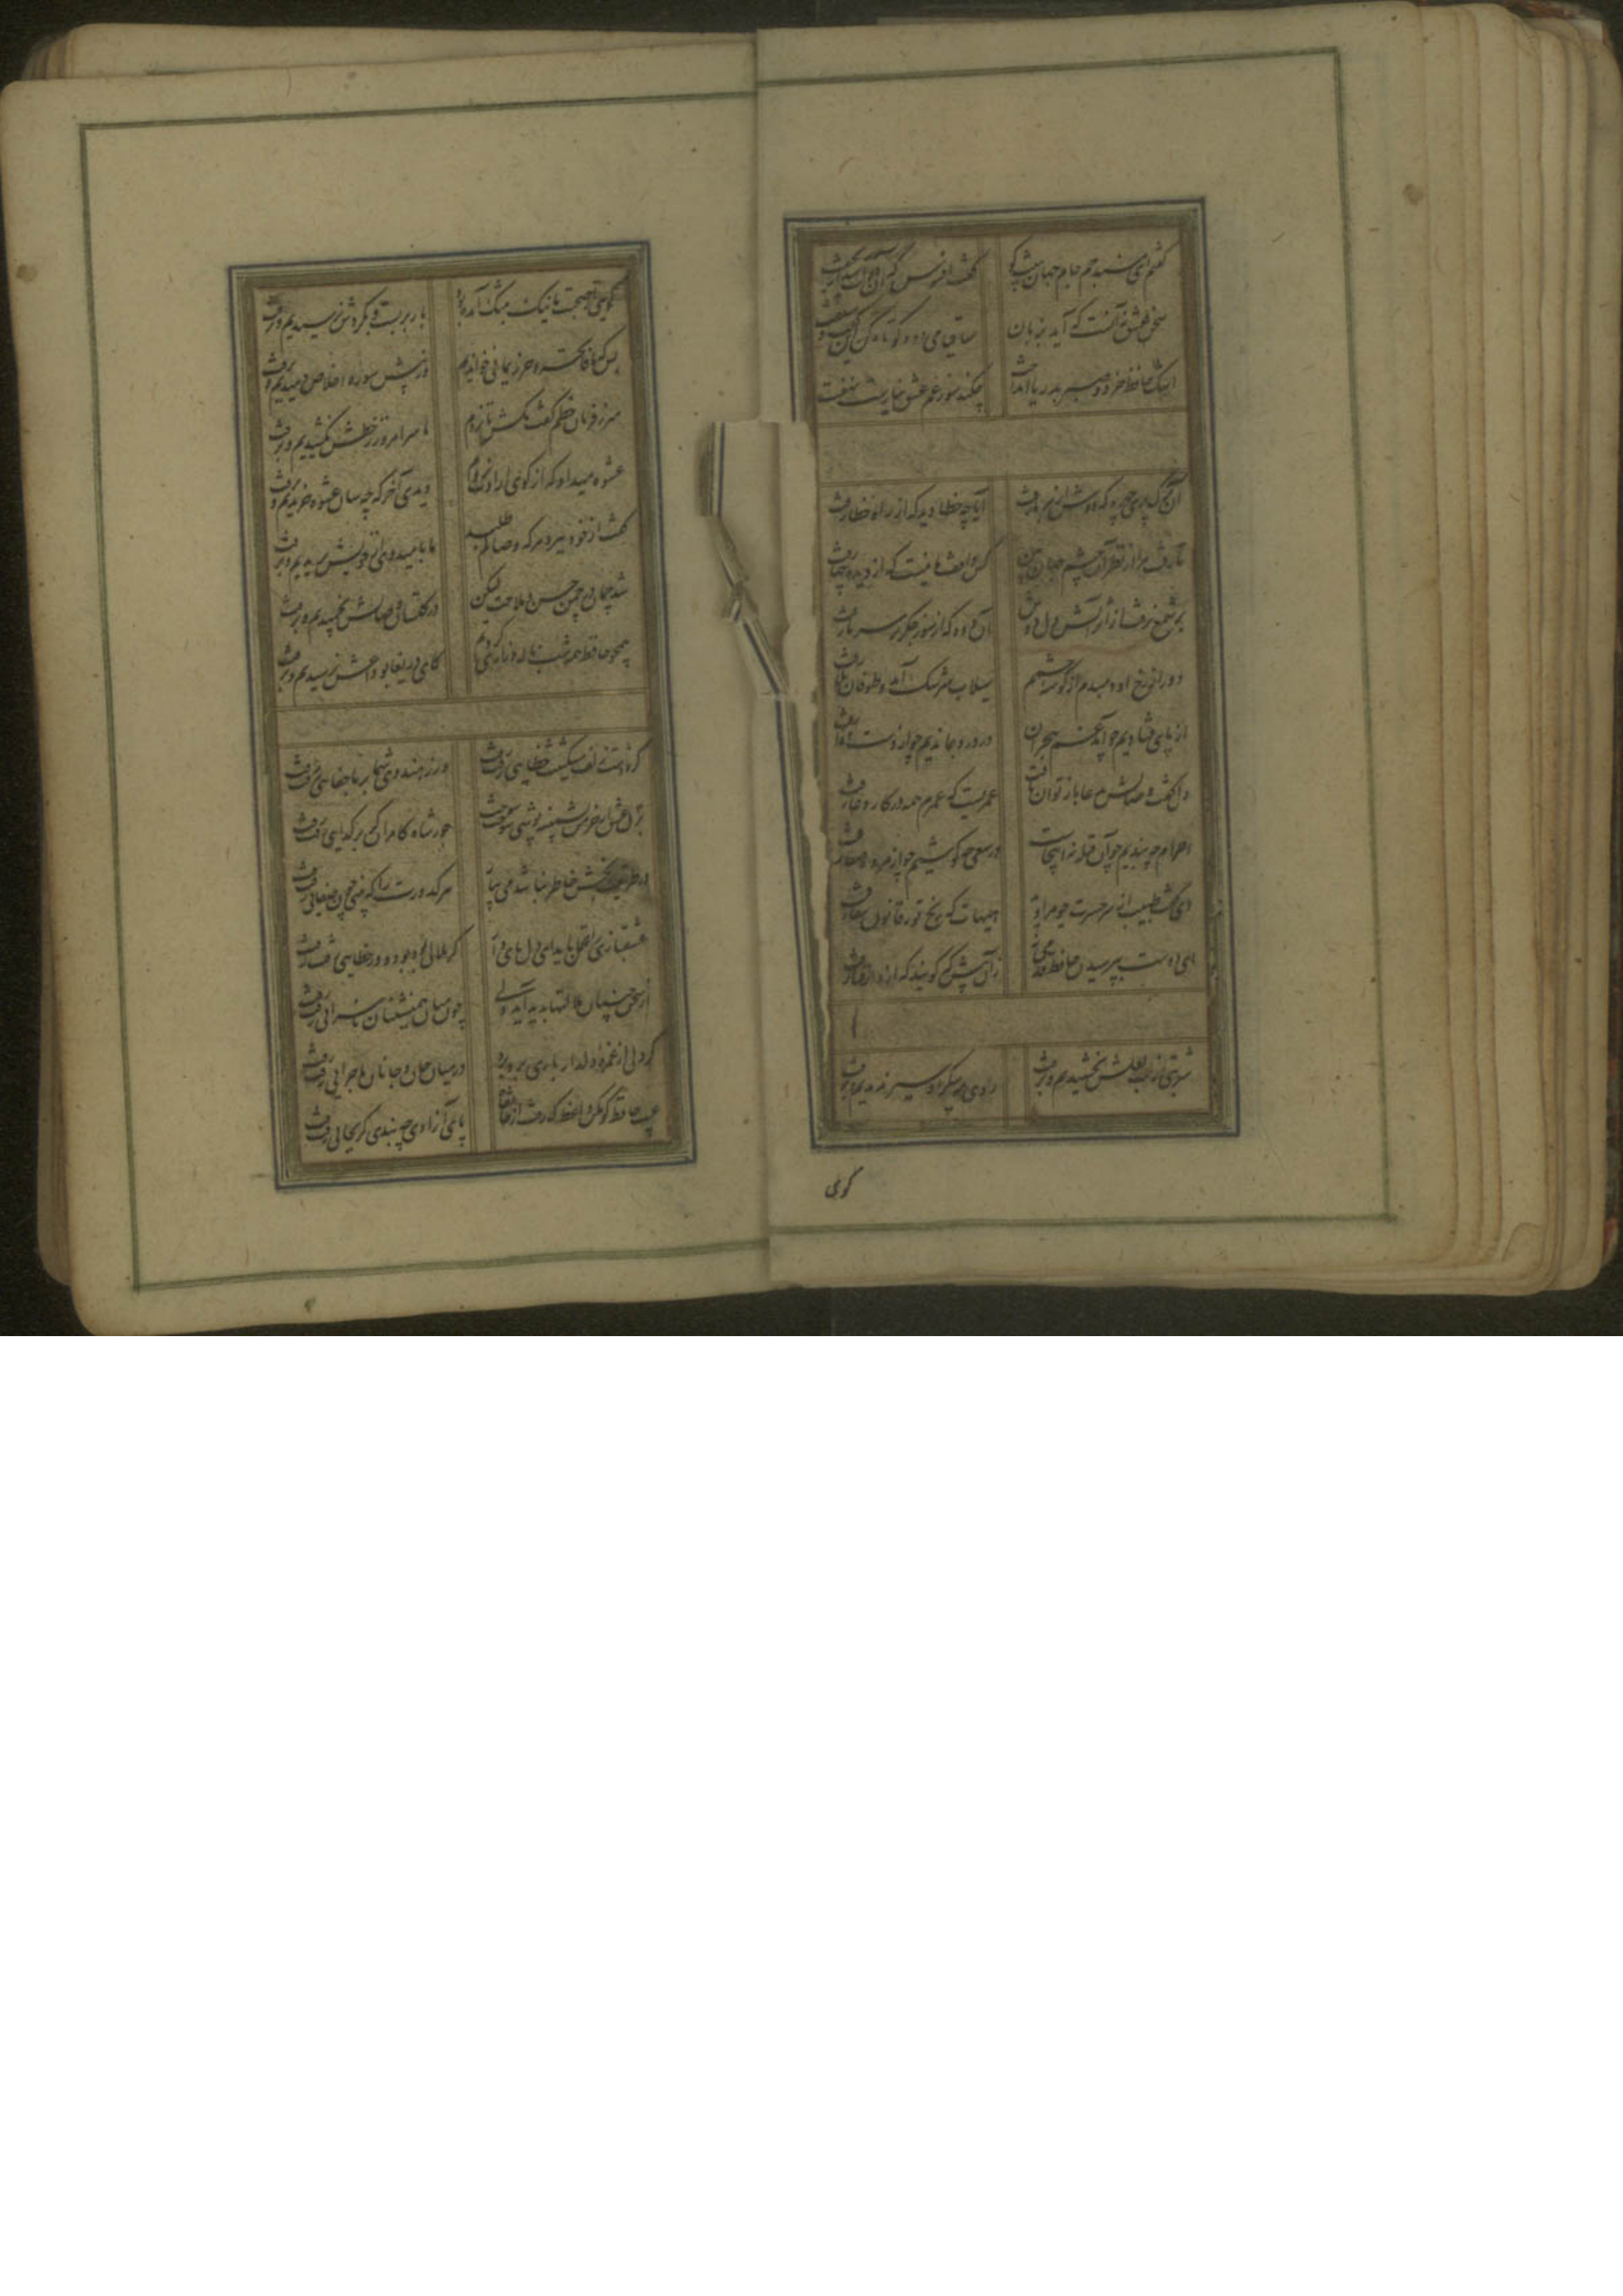 گفتم ای مسند جم جام جهان بینت کو گفت افسوس که آن دولت بیدار بخفت
سخن عشق نه آنست که آید بزبان ساقیا می ده و کوتاه کن این گفت و شنفت
اشک حافظ خرد و صبر بدریا انداخت چکند سوز غم عشق نیارست نهفت
آن ترک پری چهره که دوش از بر ما رفت آیا چه خطا دید که از راه خطا رفت
تا رفت مرا از نظر آن چشم جهان بین کس واقف ما نیست که از دیده چها رفت
بر شمع نرفت از گذر آتش دل دوش آن دود که از سوز جگر بر سر ما رفت
دور از رخ او دمبدم از گوشه چشمم سیلاب سرشک آمد و طوفان بلا رفت
از پای فتادیم چو آمد غم هجران در درد بماندیم چو از دست دوا رفت
دل گفت وصالش بدعا باز توان یافت عمریست که عمرم همه در کار دعا رفت
احرام چه بندیم چو آن قبله نه اینجاست در سعی چه کوشیم چو از مروه صفا رفت
دی گفت طبیب از سر حسرت چو مرا دید هیهات که رنج تو ز قانون شفا رفت
ای دوست بپرسیدن حافظ قدمی نه زان پیش که گویند که از دار فنا رفت
شربتی از لب لعلش نچشیدیم و برفت روی مه پیکر او سیر ندیدیم و برفت
گوی
گویی از صحبت ما نیک بتنگ آمده بود بار بربست و بگردش نرسیدیم و برفت
بس که ما فاتحه و حرز یمانی خواندیم وز پیش سوره اخلاص دمیدیم و برفت
سر ز فرمان خطم گفت مکش تا نروم ما سر امروز ز خطش نکشیدیم و برفت
عشوه میداد که از کوی ارادت نروم دیدی آخر که چه سان عشوه خریدیم و برفت
گفت از خود ببرد هر که وصالم طلبد ما بامید وی از خویش بریدیم و برفت
شد چمان در چمن حسن و ملاحت لیکن در گلستان وصالش نچمیدیم و برفت
همچو حافظ همه شب ناله و زاری کردیم کای دریغا بوداعش نرسیدیم و برفت
گر ز دست زلف مشکینت خطایی رفت رفت ور ز هندوی شما بر ما جفایی رفت رفت
برق عشق ار خرمن پشمینه پوشی سوخت سوخت جور شاه کامران گر بر گدایی رفت رفت
در طریقت رنجش خاطر نباشد می بیار هر کدورت را که بینی چون صفایی رفت رفت
عشقبازی را تحمل باید ای دل پای دار گر ملالی بود بود و ور خطایی رفت رفت
از سخن چینان ملالتها پدید آید ولی چون میان همنشینان ناسزایی رفت رفت
گر دلی از غمزه دلدار باری برد برد در میان جان و جانان ماجرایی رفت رفت
عیب حافظ گو مکن واعظ که رفت از خانقاه پای آزادی چه بندی گر بجایی رفت رفت